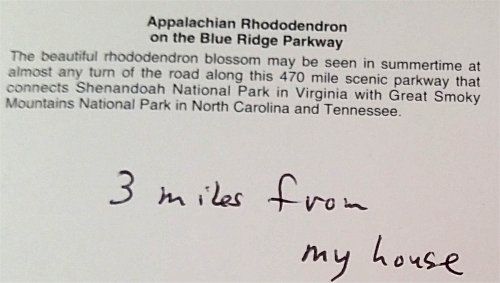 Appalachian Rhododendron
on the Blue Ridge Parkway
The beautiful rhododendron blossom may be seen in summertime at
almost any turn of the road along this 470 mile scenic parkway that
connects Shenandoah National Park in Virginia with Great Smoky
Mountains National Park in North Carolina and Tennessee.
3 miles from
my house